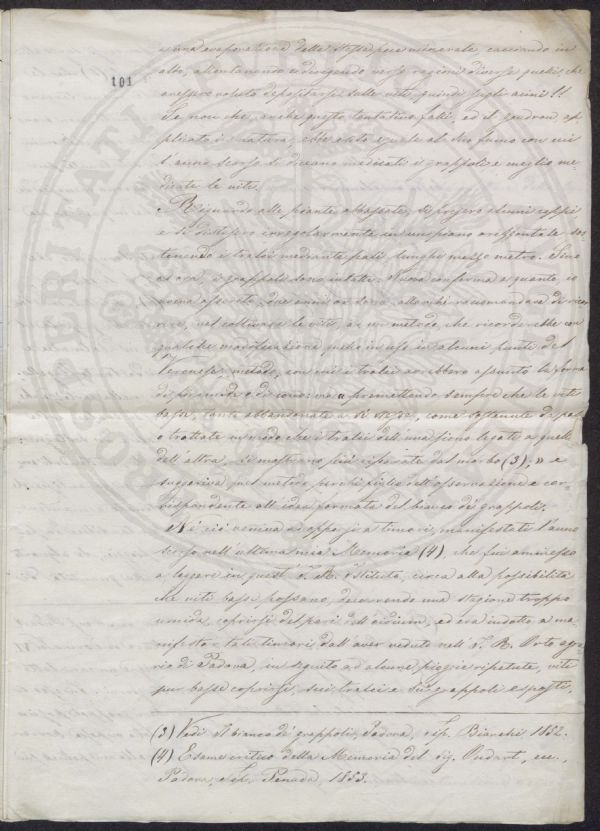 101
e una evaporazione della stessa pece minerale, cacciando in
alto, allontanando e dirigendo verso regioni diverse quelli, che
avessero voluto depositarsi sulle viti, quindi sugli acini!!
Se non che, anche questo tentativo fallì, ed il goudron, ap-
plicato in natura, ebbe esito eguale al suo fumo con cui
l'anno scorso si dicevano medicati i grappoli e meglio me-
dicate le viti.
Riguardo alle piante abbassate, si presero alcuni ceppi
e si distesero irregolarmente in un piano orizzontale so-
stenendo i tralci mediante pali lunghi mezzo metro. Sino
ad ora, i grappoli sono intatti. Nuova conferma a quanto io
aveva asserito, due anni or sono, allorchè raccomandava di ricor-
rere, nel coltivare le viti, ad un metodo, che ricorderebbe con
qualche modificazione quello in uso in alcuni punti del
Veronese, metodo, con cui i tralci avrebbero assunto la forma
di piramide o di cono, ma « premettendo sempre che le viti
basse, tanto abbandonate a sè stesse, come sostenute da pali
o trattate in modo che i tralci dell'una sieno legati a quelli
dell'altra, si mostrano più riparate dal morbo (3), » e
suggeriva quel metodo perchè figlio dell'osservazione e cor-
rispondente all'idea formata del bianco dei grappoli.
Nè ciò veniva ad opporsi a timori, manifestati l'anno
scorso nell'ultima mia Memoria (4), che fui ammesso
a leggere in quest' I. R. Istituto, circa alla possibilità
che viti basse possano, decorrendo una stagione troppo
umida, coprirsi del pari dell'oidium, ed era indotto a ma-
nifestare tali timori dall'aver veduto nell' I. R. Orto agra-
rio di Padova, in seguito ad alcune pioggie ripetute, viti
pur basse coprirsi, sui tralci e sui grappoli esposti,
(3) Vedi Il bianco dei grappoli, Padova, tip. Bianchi 1852.
(4) Esame critico della Memoria del sig. Oudart, ecc.,
Padova, tip. Penada, 1853.